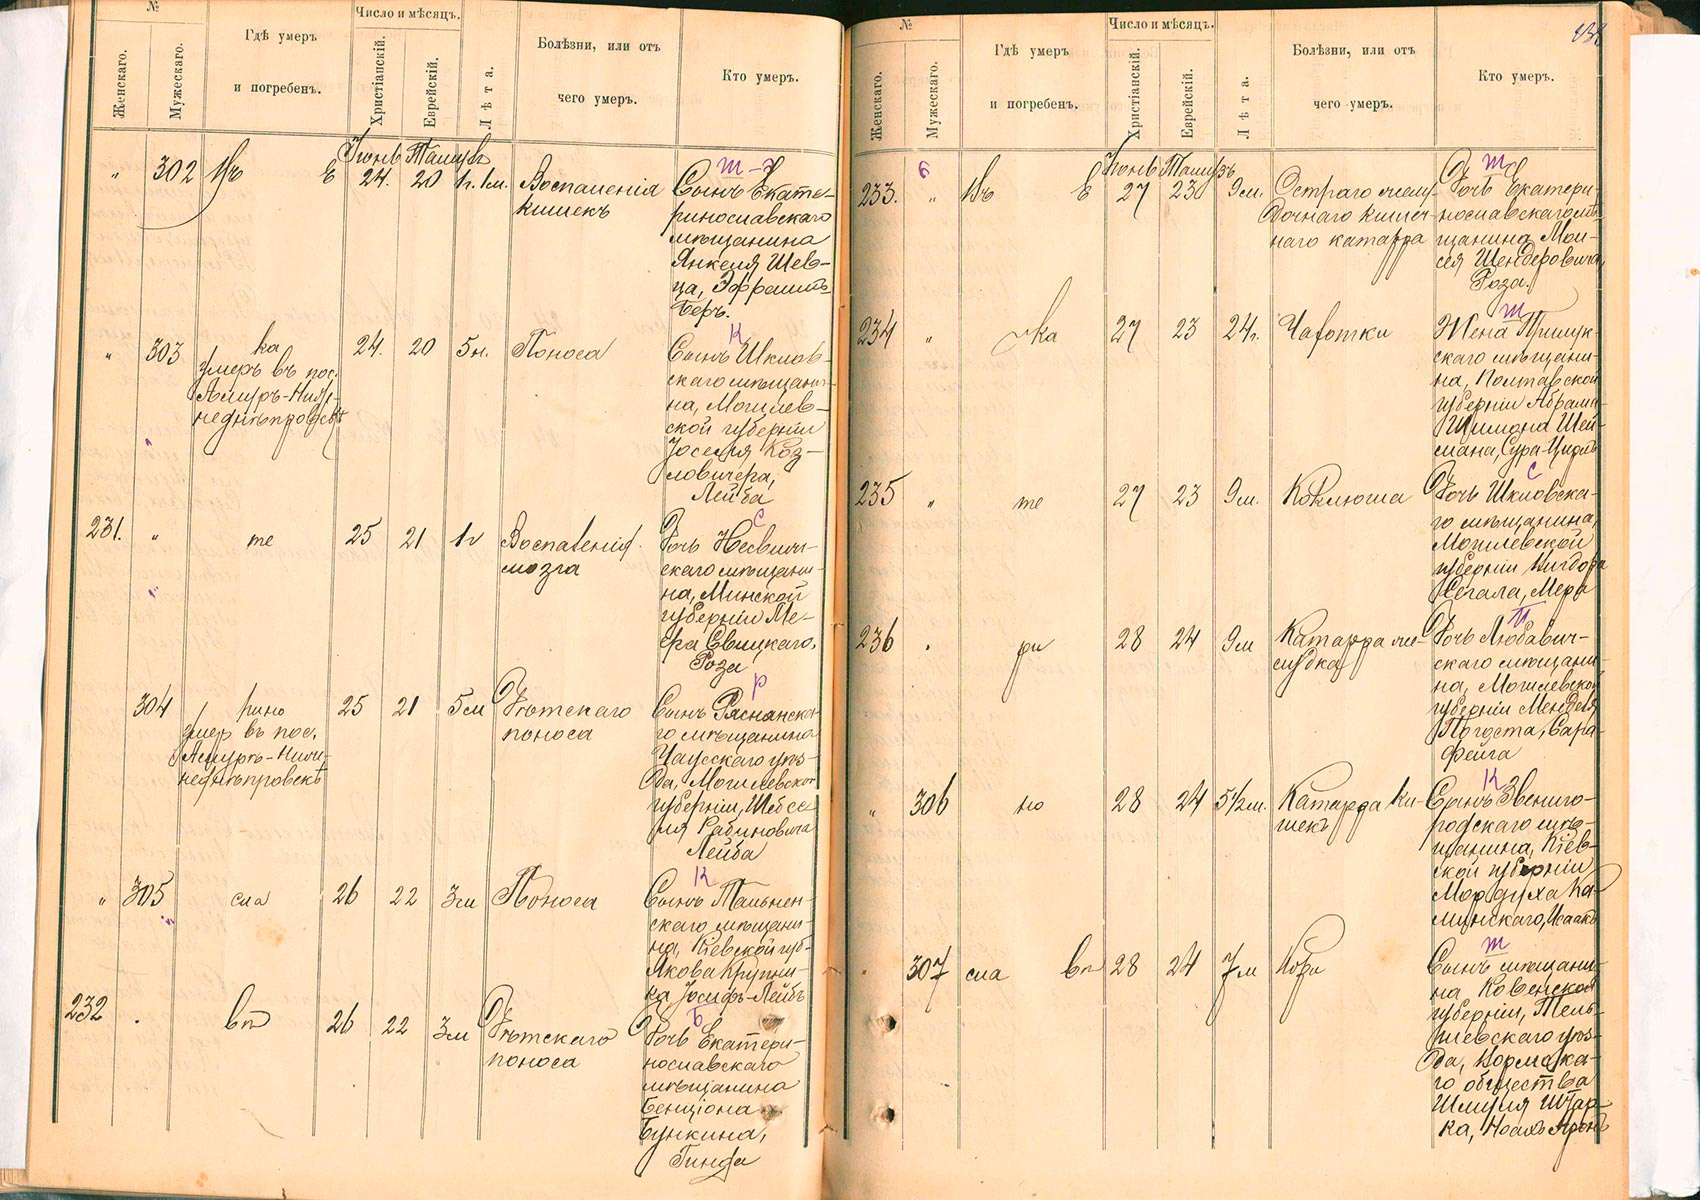 №
Женскаго.
Мужескаго.
Гдѣ умеръ
и погребенъ.
Число и мѣсяцъ.
Христіанскій.
Еврейскій.
Лѣта.
Болѣзни, или отъ
чего умеръ.
Кто умеръ.
Іюнь Тамузъ
" 302 Въ Е 24. 20 1г. 1м. Воспаленія
кишекъ
Сынъ Екате-
ринославскаго
мѣщанина
Янкеля Шев-
ца, Эфраимъ-
Беръ.
К
" 303 ка
умеръ въ пос.
Амуръ-Нижне-
днѣпровскѣ
24. 20 5н. Поноса
Сынъ Шклов-
скаго мѣщани-
на, Могилев-
ской губерніи
Іоселя Коз-
ловичера,
Лейба
С
231. " те 25 21 1г Воспаленія
мозга
Дочь Несвиж-
скаго мѣщани-
на, Минской
губерніи Ме-
ера Евицкаго,
Роза
Р
304 рино
умер въ пос.
Амуръ-Нижне-
днѣпровскѣ
25 21 5м Дѣтскаго
поноса
Сынъ Ряснянска-
го мѣщанина
Чаусскаго уѣз-
да, Могилевской
губерніи, Шебсе-
ля Рабиновича
Лейба
К
" 305 сла 26 22 3м Поноса
Сынъ Тальнен-
скаго мѣщани-
на, Кіевской губ-
Якова Крупни-
ка Іосифъ-Лейбъ
Б
232 . вп 26 22 3м Дѣтскаго
поноса
Дочь Екатери-
нославскаго
мѣщанина
Бенціона
Бункина,
Гинда
№
Женскаго.
Мужескаго.
Гдѣ умеръ
и погребенъ.
Число и мѣсяцъ.
Христіанскій.
Еврейскій.
Лѣта.
Болѣзни, или отъ
чего умеръ.
Кто умеръ.
Іюнь Тамузъ
233. " Въ Е 27 23 9м. Остраго желу-
дочнаго кишеч-
наго катарра
Дочь Екатери-
нославскаго мѣ-
щанина Мои-
сея Шендеровича,
Роза.
Ш
234 " ка 27 23 24г. Чахотки
Жена Прилук-
скаго мѣщани-
на, Полтавской
губерніи Абрама-
Шимона Шей-
мана, Сура-Ципа
С
235 " те 27 23 9м. Коклюша
Дочь Шкловска-
го мѣщанина,
Могилевской
губерніи Вигдора
Сегала, Мера
П
236 . ри 28 24 9м Катарра же-
лудка
Дочь Любавич-
скаго мѣщани-
на, Могилевской
губерніи Менделя
Погоста, Сара-
Фейга
К
" 306 но 28 24 5 1/2м. Катарра ки-
шекъ
Сынъ Звениго-
родскаго мѣ-
щанина, Кіев-
ской губерніи
Мордуха Ка-
минскаго, Исаакъ
Ш
307 сла вп 28 24 7м Кори
Сынъ мѣщани-
на Ковенской
губерніи, Тель-
шевскаго уѣз-
да, 
го общества
Шмуля Штар-
ка, Ноахъ Аронъ